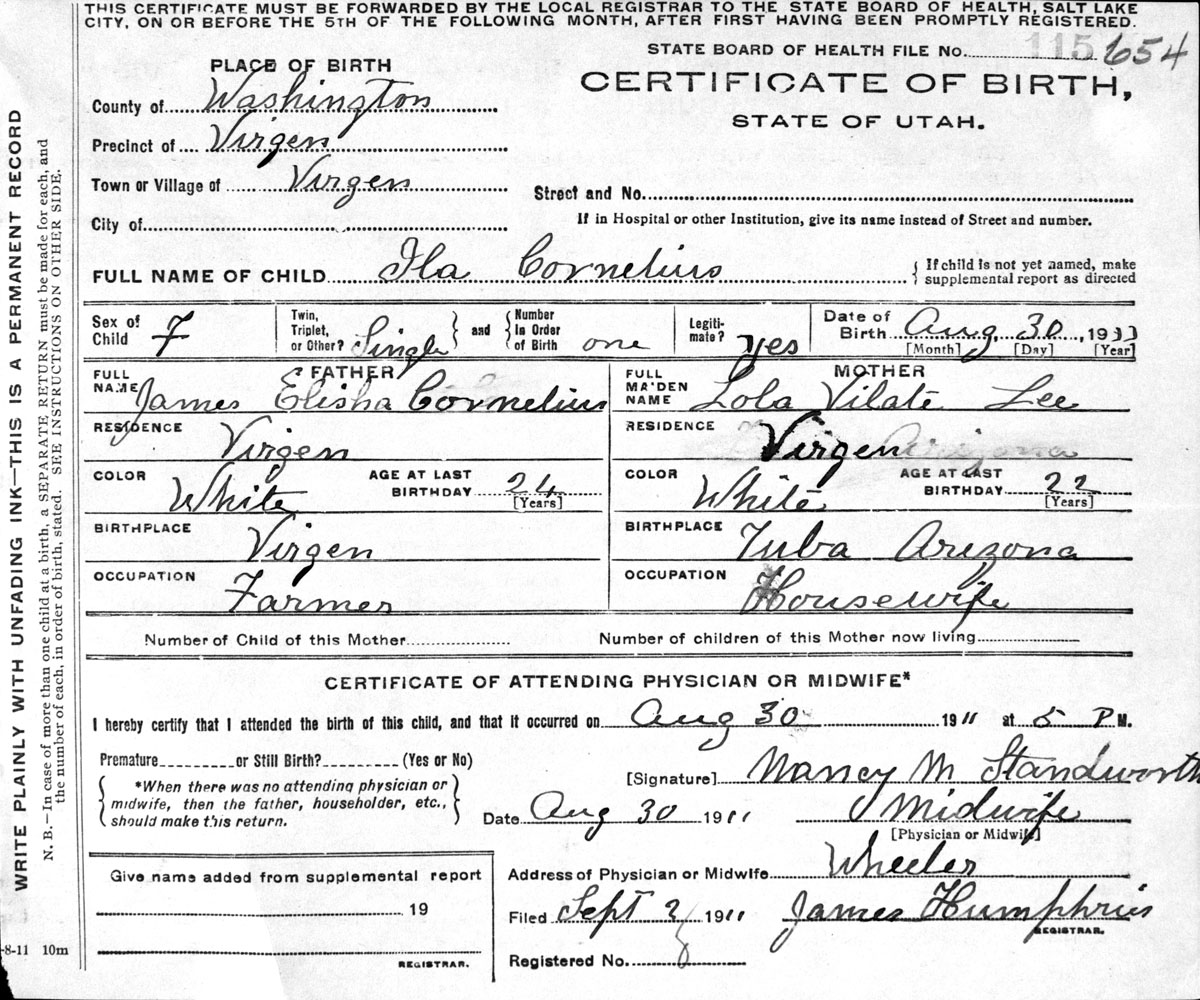 THIS CERTIFICATE MUST BE FORWARDED BY THE LOCAL REGISTRAR TO THE STATE BOARD OF HEALTH, SALT LAKE
CITY, ON OR BEFORE THE 5TH OF THE FOLLOWING MONTH, AFTER FIRST HAVING BEEN PROMPTLY REGISTERED.
STATE BOARD OF HEALTH FILE No. 115 654
PLACE OF BIRTH
CERTIFICATE OF BIRTH,
STATE OF UTAH.
County of Washington
Precinct of Virgen
Town or Village of Virgen
Street and No.
City of
If in Hospital or other Institution, give its name instead of Street and number.
FULL NAME OF CHILD Ila Cornelius
{ If child is not yet named, make
supplemental report as directed
Sex of Child F
Twin, Triplet, or Other? Single
and Number In Order of Birth one
Legiti-mate? yes
Date of Birth Aug 30, 19
[Month] [Day] [Year]
FATHER
FULL NAME James Elisha Cornelius
RESIDENCE Virgen
COLOR White AGE AT LAST BIRTHDAY 24 [Years]
BIRTHPLACE Virgen
OCCUPATION Farmer
MOTHER
FULL MAIDEN NAME Lola Vilate Lee
RESIDENCE Virgen
COLOR White AGE AT LAST BIRTHDAY 22 [Years]
BIRTHPLACE Tuba Arizona
OCCUPATION Housewife
Number of Child of this Mother Number of children of this Mother now living
CERTIFICATE OF ATTENDING PHYSICIAN OR MIDWIFE*
I hereby certify that I attended the birth of this child, and that it occurred on Aug 30 1911 at 5 P M.
Premature or Still Birth? (Yes or No)
*When there was no attending physician or
midwife, then the father, householder, etc.,
should make this return.
[Signature] Nancy M Standworth
Date Aug 30 1911 Midwife
[Physician or Midwife]
Address of Physician or Midwife Wheeler
Filed Sept 2 1911 James Humphries
REGISTRAR.
Registered No.
Give name added from supplemental report
19
REGISTRAR.
-8-11 10m
WRITE PLAINLY WITH UNFADING INK—THIS IS A PERMANENT RECORD
N. B.—In case of more than one child at a birth, a SEPARATE RETURN must be made for each, and
the number of each, in order of birth, stated. SEE INSTRUCTIONS ON OTHER SIDE.